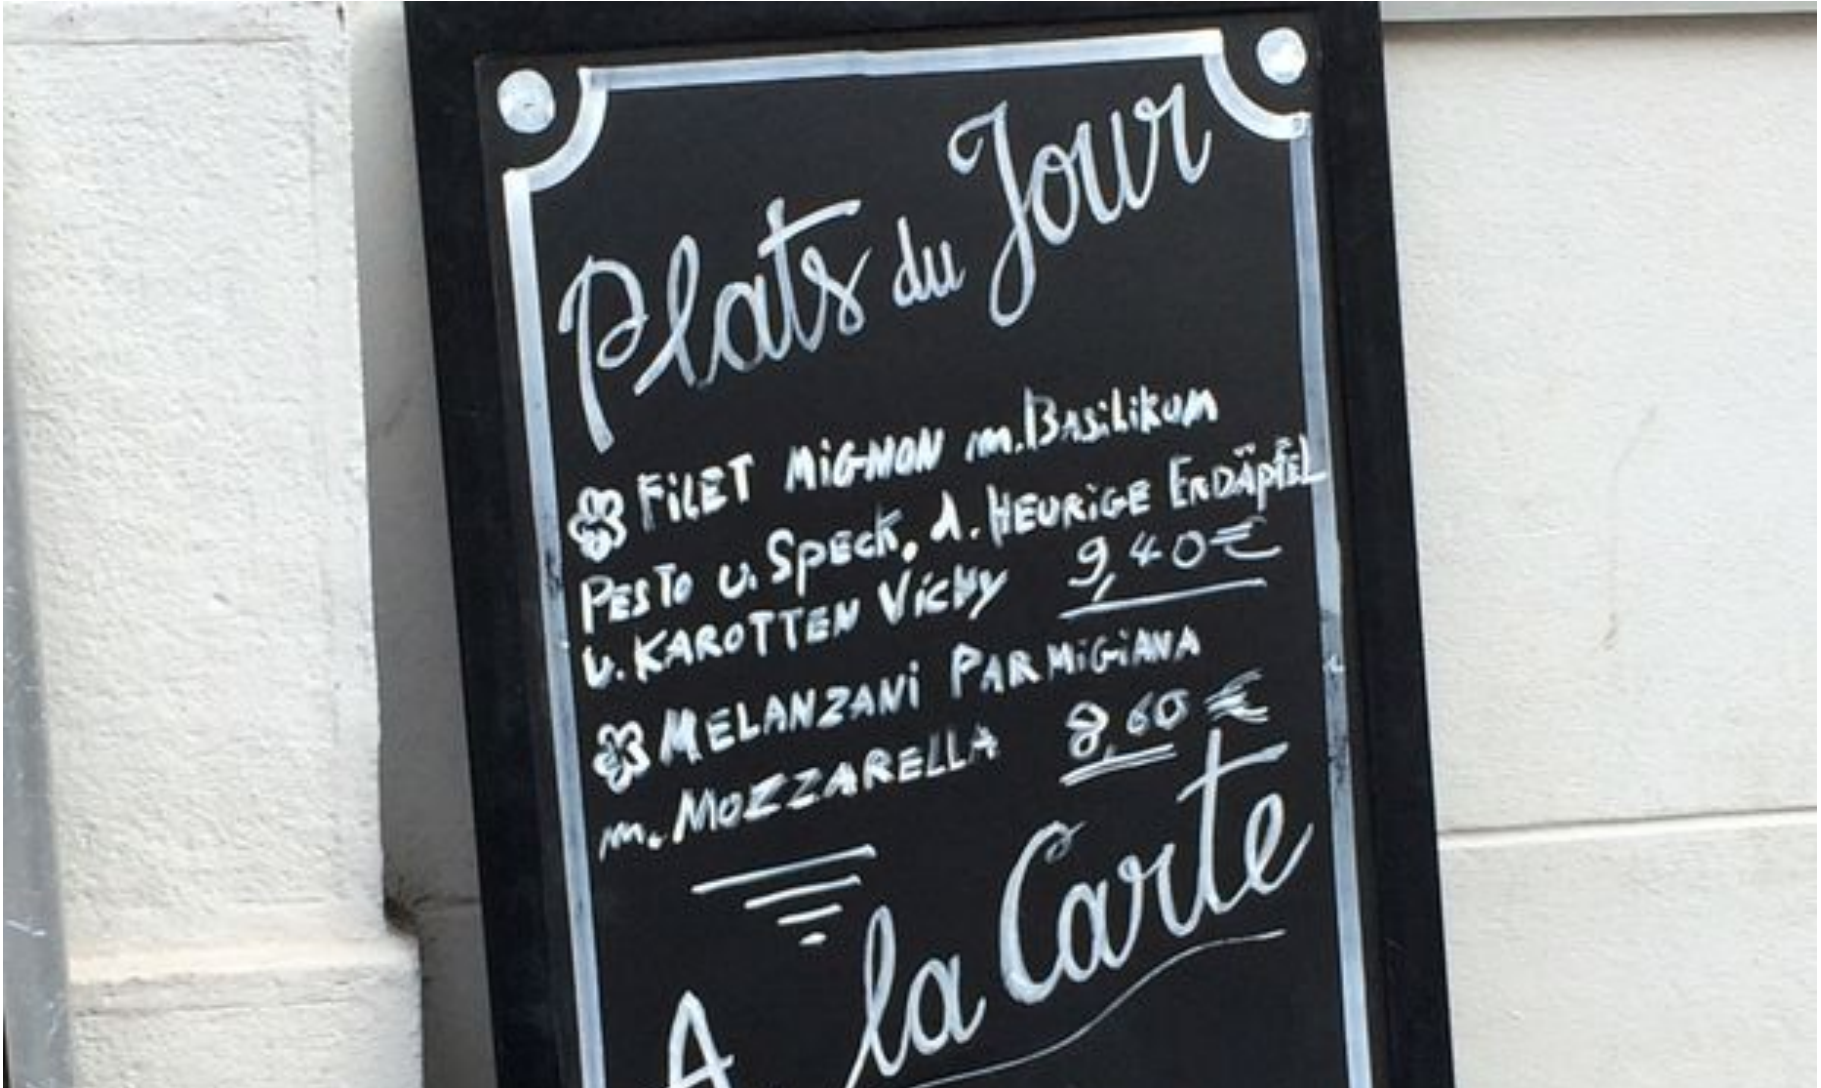 Plats du Jour
FiLET MiGNON m. BASiLiKUM
PESTO u. SPECK, d. HEURiGE ERDÄPFEL
u. KAROTTEN ViCHY 9,40 €
MELANZANi PARMiGiANA
m. MOZZARELLA 8,60 €
A la Carte